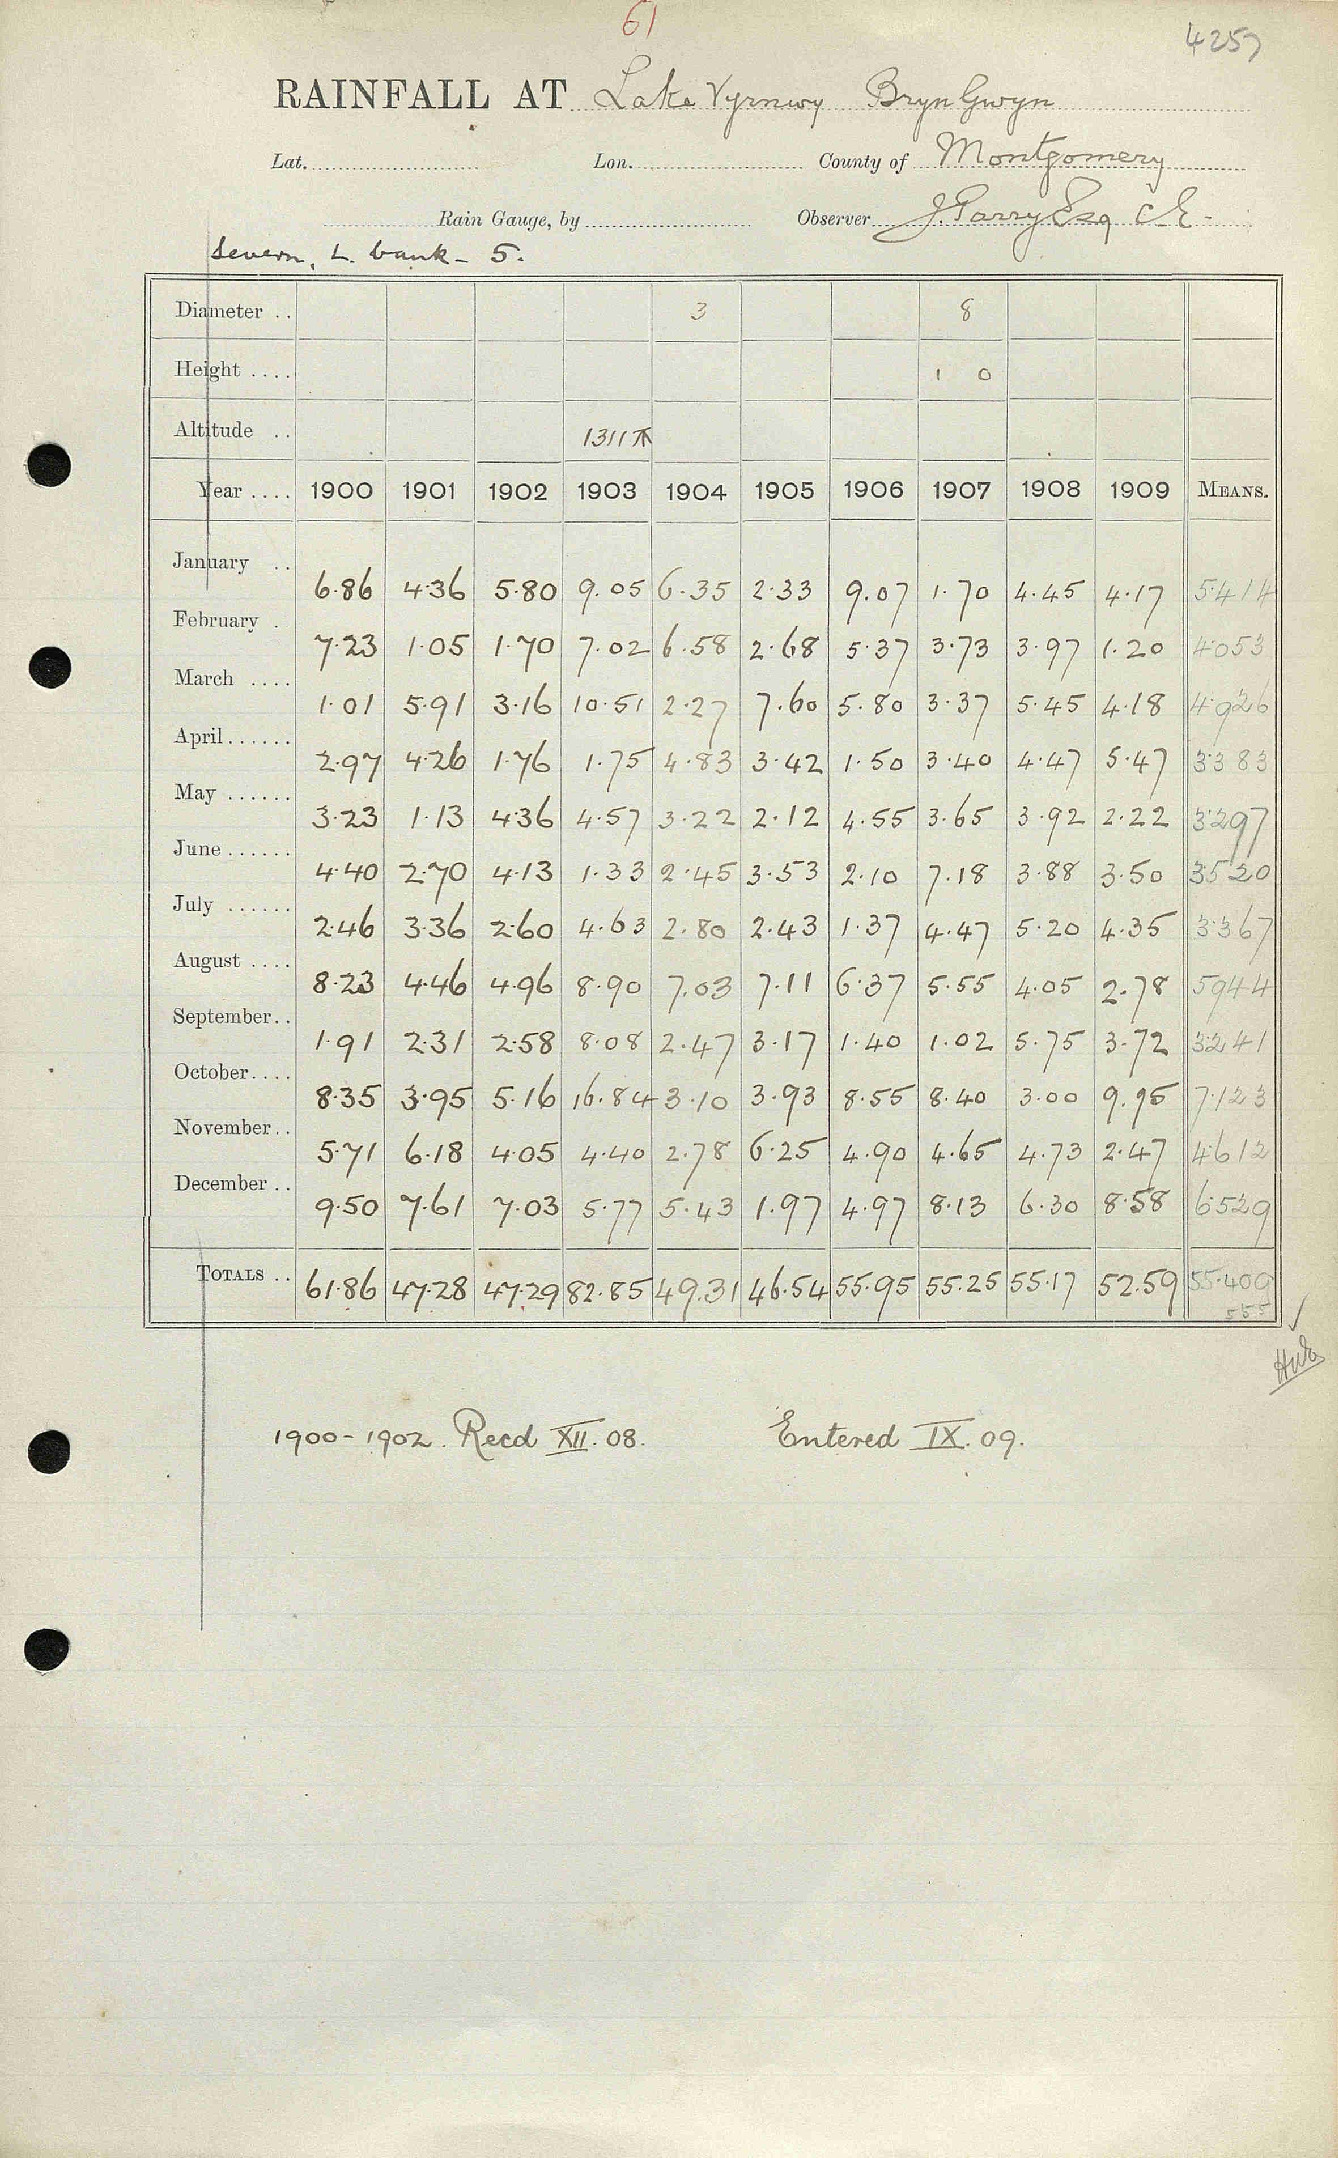 61
4257
RAINFALL AT Lake Vyrnwy Bryn Gwyn
Lat. Lon. County of Montgomery
Rain Gauge, by Observer J. Parry Esq C.E.
Severn, L. bank - 5.
Diameter .. 3 8
Height .... 1 0
Altitude .. 1311
Year .... 1900 1901 1902 1903 1904 1905 1906 1907 1908 1909 MEANS.
January .. 6.86 4.36 5.80 9.05 6.35 2.33 9.07 1.70 4.45 4.17 5.414
February . 7.23 1.05 1.70 7.02 6.58 2.68 5.37 3.73 3.97 1.20 4.053
March .... 1.01 5.91 3.16 10.51 2.27 7.60 5.80 3.37 5.45 4.18 4.926
April...... 2.97 4.26 1.76 1.75 4.83 3.42 1.50 3.40 4.47 5.47 3.383
May ...... 3.23 1.13 4.36 4.57 3.22 2.12 4.55 3.65 3.92 2.22 3.297
June ...... 4.40 2.70 4.13 1.33 2.45 3.53 2.10 7.18 3.88 3.50 3.520
July ...... 2.46 3.36 2.60 4.63 2.80 2.43 1.37 4.47 5.20 4.35 3.367
August .... 8.23 4.46 4.96 8.90 7.03 7.11 6.37 5.55 4.05 2.78 5.944
September.. 1.91 2.31 2.58 8.08 2.47 3.17 1.40 1.02 5.75 3.72 3.241
October.... 8.35 3.95 5.16 16.84 3.10 3.93 8.55 8.40 3.00 9.95 7.123
November.. 5.71 6.18 4.05 4.40 2.78 6.25 4.90 4.65 4.73 2.47 4.612
December .. 9.50 7.61 7.03 5.77 5.43 1.97 4.97 8.13 6.30 8.58 6.529
TOTALS .. 61.86 47.28 47.29 82.85 49.31 46.54 55.95 55.25 55.17 52.59 55.409
555
1900-1902. Recd XII. 08. Entered IX. 09.